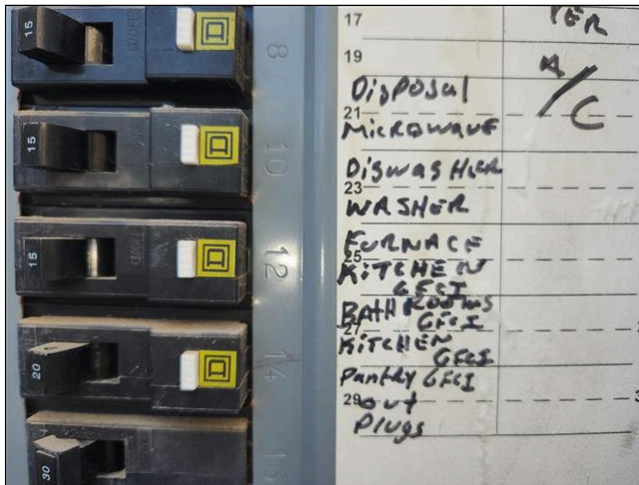 15
O/OFF
8
15
10
15
12
20
14
30
17
19
Disposal
21
Microwave
Diswasher
23
WASHER
FURNACE
25
KITCHEN
GFCI
BATHROOMS
27
GFCI
KITCHEN
GFCI
Pantry GFCI
29
out
Plugs
A/C